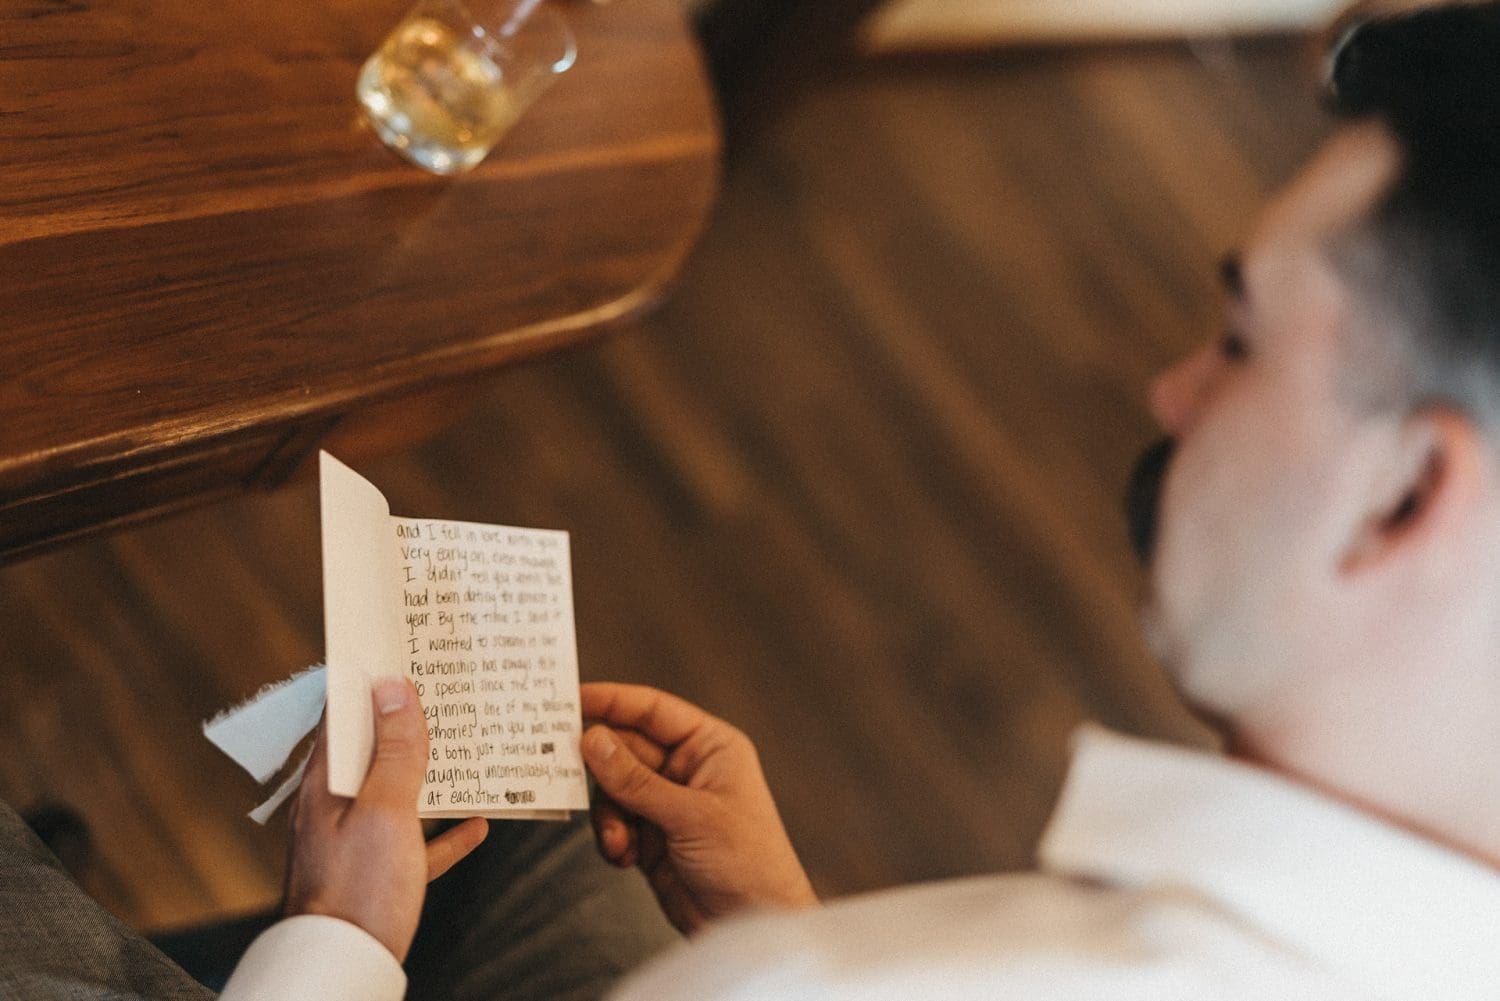 and I fell in love with you
very early on, even though
I didn't tell you until we
had been dating for almost a
year. By the time I said it
I wanted to scream it. Our
relationship has always felt
so special since the very
eginning. One of my
emories with you was when
e both just started
laughing uncontrollably, staring
at each other.